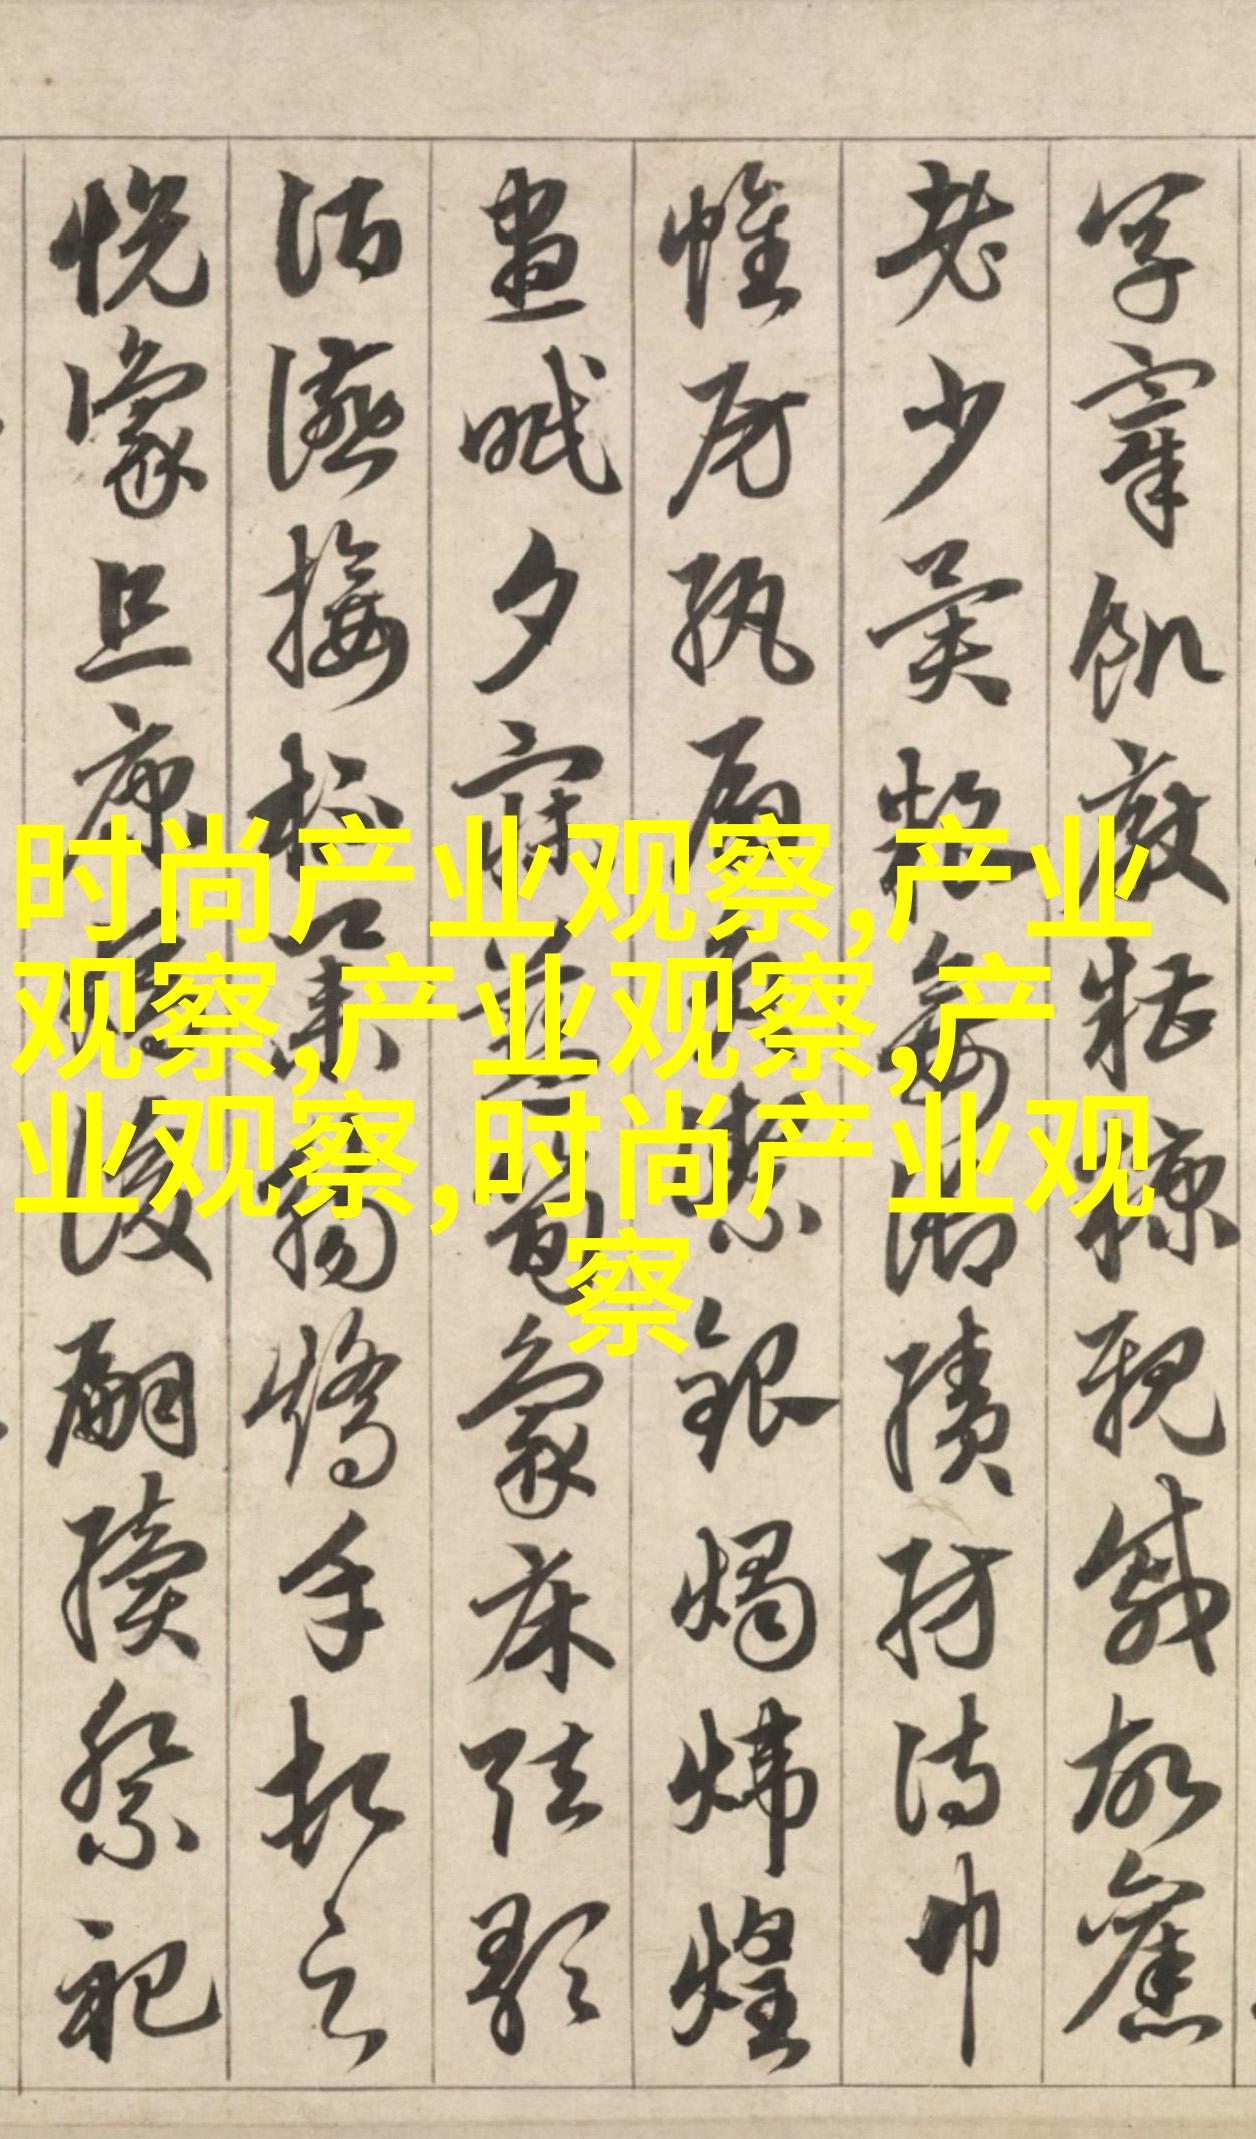 烹宰飢厭糟糠親戚故舊
老少異糧妾御績紡侍巾
帷房紈扇圓潔銀燭煒煌
晝眠夕寐藍筍象床弦歌
酒讌接杯舉觴矯手頓足
悅豫且康嫡後嗣續祭祀
时尚产业观察,产业
观察,产业观察,产
业观察,时尚产业观
察